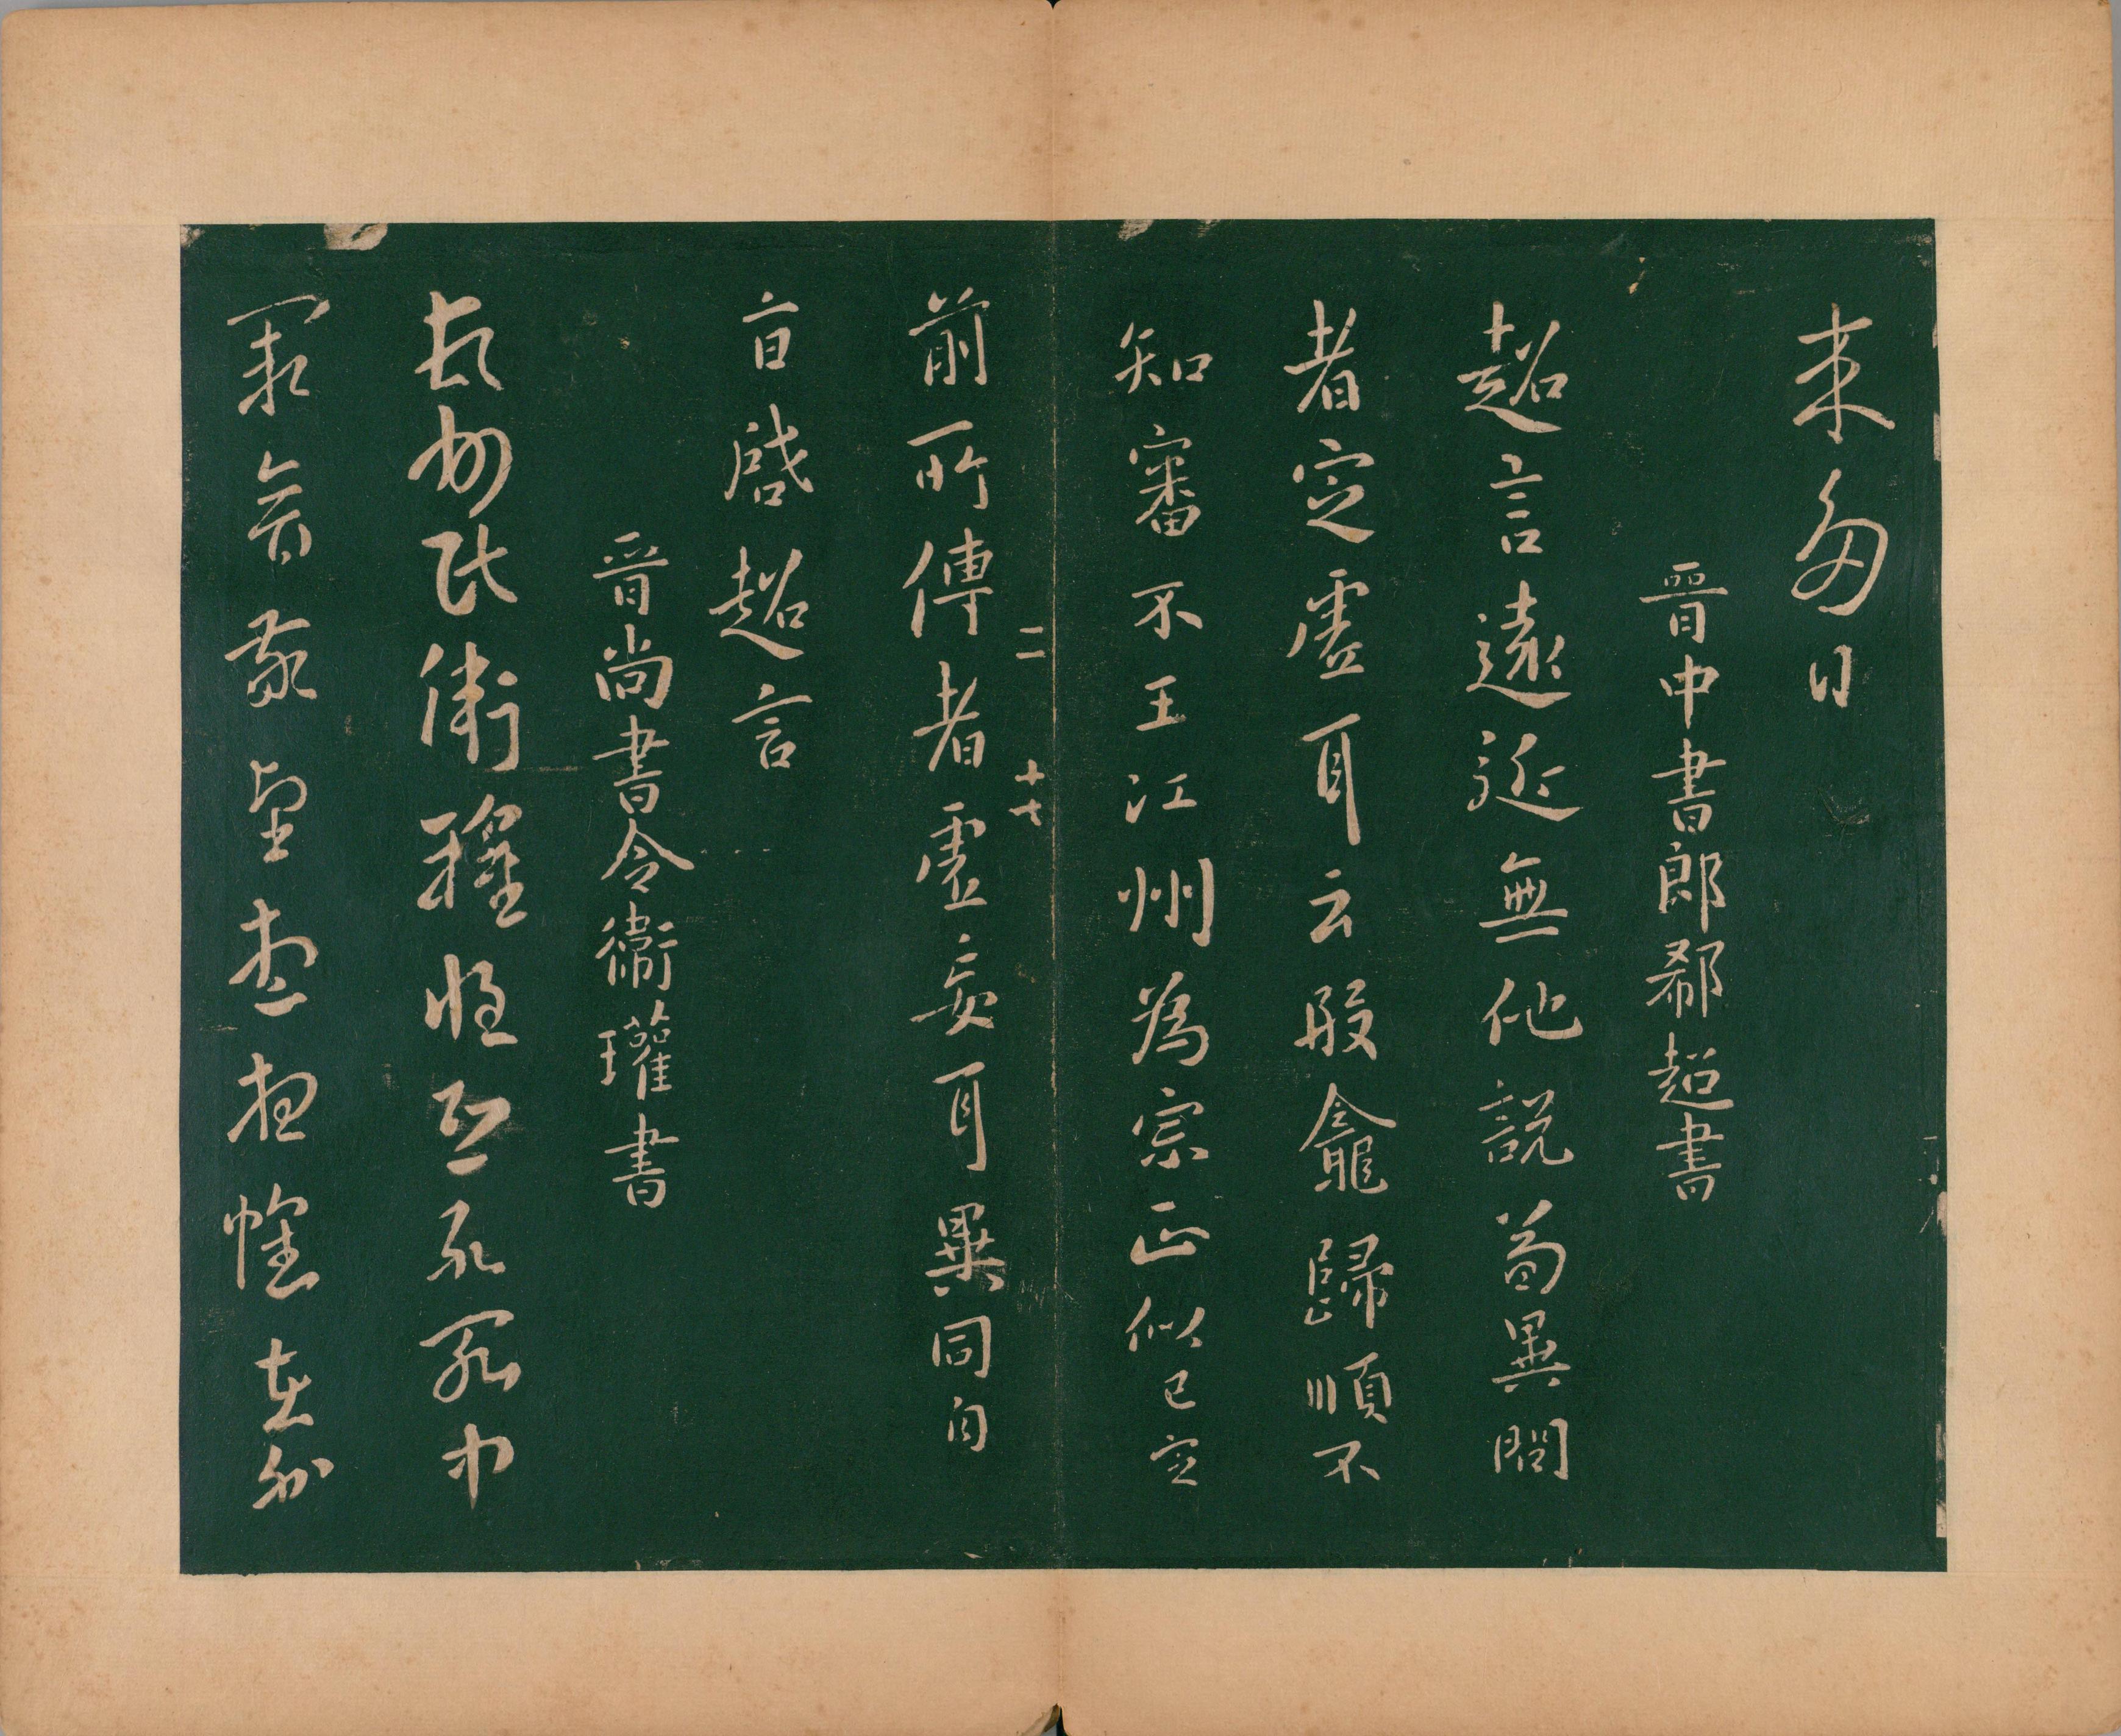 来多日
晉中書郎郗超書
超言遠近無他說苟異問
者定虛耳云殷龕歸順不
知審不王江州為宗正似已定
二 十七
前所傳者虛妄耳畢同自
旨啓超言
晉尚書令衛瓘書
州民衛瓘惶恐死罪中